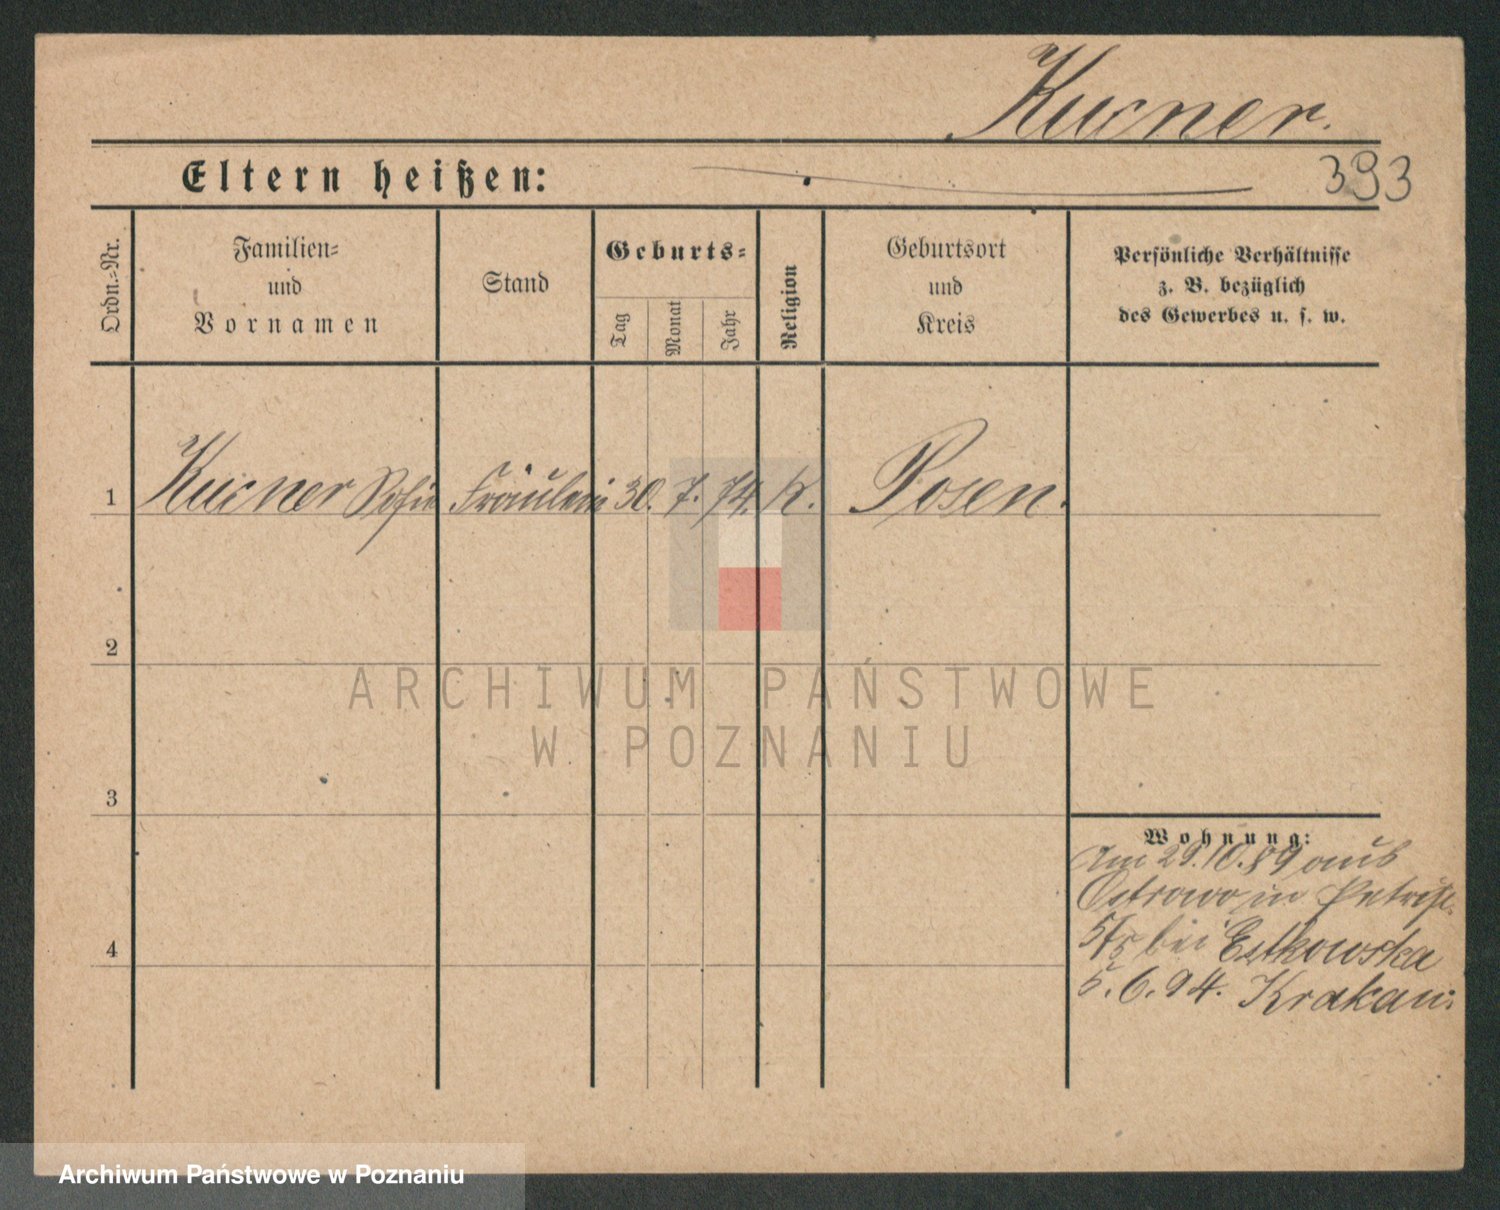 Kucner.
Eltern heißen:
393
Ordn.=Nr.
Familien=
und
Vornamen
Stand
Geburts=
Tag
Monat
Jahr
Religion
Geburtsort
und
Kreis
Persönliche Verhältnisse
z. B. bezüglich
des Gewerbes u. s. w.
1 Kucner Sofie Fräulein 30. 7. 74. K. Posen.
2
ARCHIWUM PAŃSTWOWE
W POZNANIU
3
Wohnung:
Am 29.10.89 aus
Ostrowo in
bei Estkowska
4
5.6.94. Krakau.
Archiwum Państwowe w Poznaniu